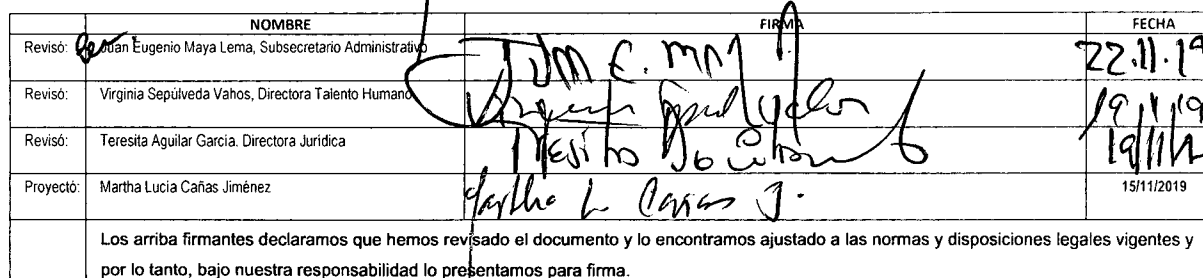 NOMBRE FIRMA FECHA
Revisó: Juan Eugenio Maya Lema, Subsecretario Administrativo 22.11.19
Revisó: Virginia Sepúlveda Vahos, Directora Talento Humano 19/11/19
Revisó: Teresita Aguilar Garcia. Directora Jurídica
Proyectó: Martha Lucia Cañas Jiménez Martha L Cañas J. 15/11/2019
Los arriba firmantes declaramos que hemos revisado el documento y lo encontramos ajustado a las normas y disposiciones legales vigentes y
por lo tanto, bajo nuestra responsabilidad lo presentamos para firma.